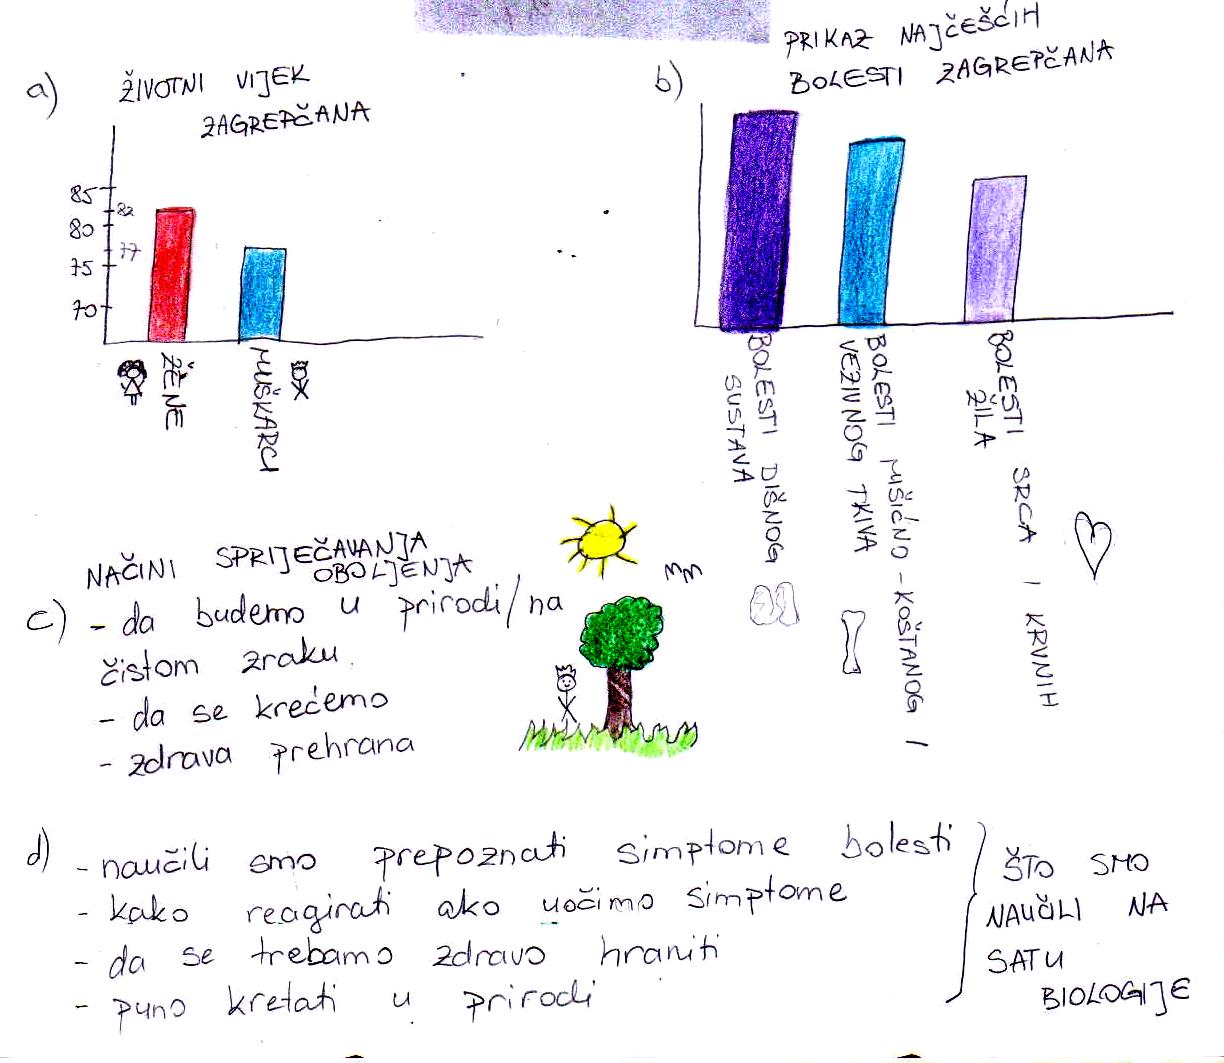 a) ŽIVOTNI VIJEK
ZAGREPČANA
85
82
80
77
75
70
ŽENE
MUŠKARCI
b) PRIKAZ NAJČEŠĆIH
BOLESTI ZAGREPČANA
BOLESTI DIŠNOG
SUSTAVA
BOLESTI MIŠIĆNO-KOŠTANOG I
VEZIVNOG TKIVA
BOLESTI SRCA I KRVNIH
ŽILA
NAČINI SPRIJEČAVANJA
OBOLJENJA
c) - da budemo u prirodi/na
čistom zraku.
- da se krećemo
- zdrava prehrana
d) - naučili smo prepoznati simptome bolesti
- kako reagirati ako uočimo simptome
- da se trebamo zdravo hraniti
- puno kretati u prirodi
ŠTO SMO
NAUČILI NA
SATU
BIOLOGIJE